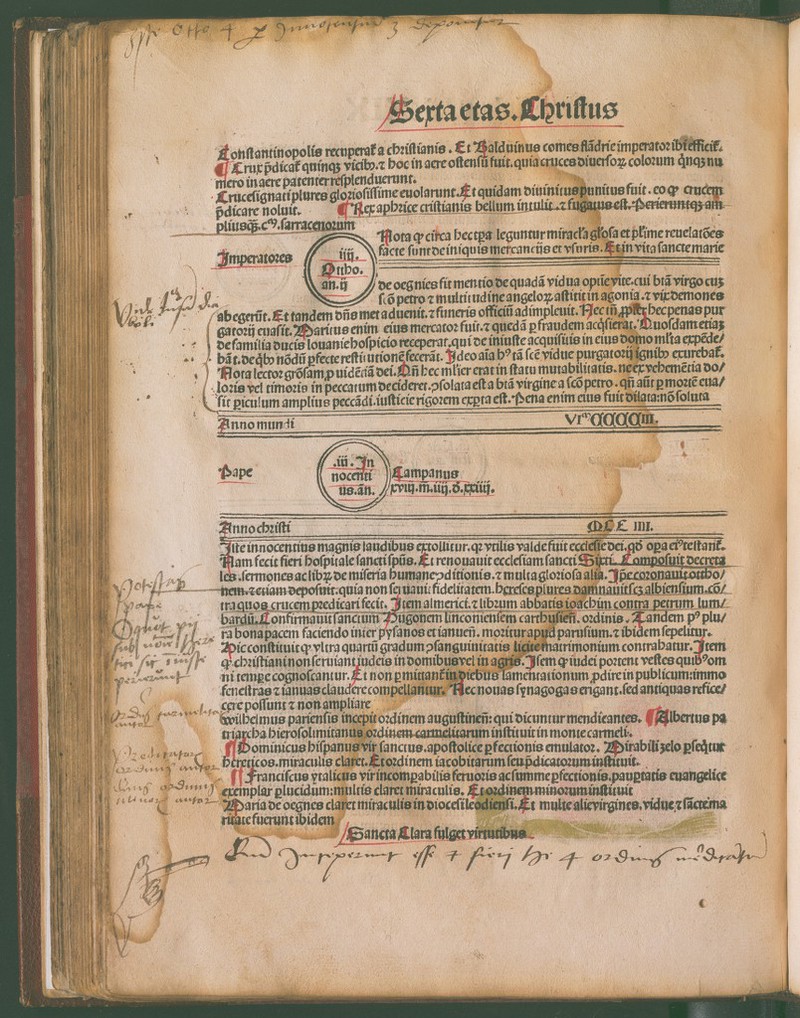 Sexta etas. Christus
Constantinopolis recuperat̃ a christianis. Et Balduinus comes flãdrie imperator ibi efficit̃.
¶ Crux p̃dicat̃ quinq3 vicib9. ⁊ hoc in aere ostensũ fuit. quia cruces diuersoꝝ colorum q̃nq3 nu
mero in aere patenter resplenduerunt.
Crucesignati plures gloriosissime euolarunt. Et quidam diuinitus punitus fuit. eo ꝙ crucem
p̃dicare noluit. ¶ Rex aphrice cristianis bellum intulit. ⁊ fugatus est. Perieruntq3 am
plius q̃3. cm. sarracenorum
Nota ꝙ circa hec tp̃a leguntur miracl̃a gl̃osa et pl̃ime reuelatões
Imperatores
iiij.
Ottho.
an. ij
facte sunt de iniquis mercancijs et vsuris. Et in vita sancte marie
de oegnies fit mentio de quadã vidua optĩe vite. cui btã virgo cuz
scõ petro ⁊ multitudine angeloꝝ astitit in agonia. ⁊ vix demones
abegerũt. Et tandem dñs met aduenit. ⁊ funeris officiũ adimpleuit. Nec tñ ꝓpter hec penas pur
gatorij euasit. Maritus enim eius mercator fuit. ⁊ quedã ꝑ fraudem acq̃sierat. Quosdam etiaz
de familia ducis louanie hospicio receperat. qui de iniuste acquisitis in eius domo ml̃ta expẽde/
bãt. de q̃b9 nõdũ ꝑfecte restitutionẽ fecerãt. Ideo aĩa h9 tã scẽ vidue purgatorij ignib9 exurebat̃.
Nota lector grõsam ꝓuidẽtiã dei. Qñ hec ml̃ier erat in statu mutabilitatis. ne ex vehemẽtia do/
loris vel timoris in peccatum decideret. ꝯsolata est a btã virgine a scõ petro. qñ aũt ꝑ mortẽ eua/
sit ꝑiculum amplius peccãdi. iusticie rigorem exꝑta est. Pena enim eius fuit dilata: nõ soluta
Anno mundi VIm CCCCiij.
Pape
.iij. In
nocenti
us. an.
Campanus
xviij. m̃. iiij. d̃. xxiiij.
Anno christi MCC IIII.
Iste innocentius magnis laudibus extollitur. qꝛ vtilis valde fuit ecclesie dei. qđ oꝑa ei9 testant̃.
Nam fecit fieri hospitale sancti spũs. Et renouauit ecclesiam sancti Sixti. Composuit decreta
les. sermones ac libꝝ de miseria humane ꝯditionis. ⁊ multa gloriosa alia. Ip̃e coronauit ottho/
nem. ⁊ etiam deposuit. quia non seruauit fidelitatem. hereses plures damnauit scz albiensium. cõ/
tra quos crucem predicari fecit. Item almerici. ⁊ librum abbatis ioachim contra petrum lum/
bardũ. Confirmauit sanctum Hugonem linconiensem carthusieñ. ordinis. Tandem p9 plu/
ra bona pacem faciendo inter pysanos et ianueñ. moritur apud parusium. ⁊ ibidem sepelitur.
Hic constituit ꝙ vltra quartũ gradum ꝯsanguinitatis licite matrimonium contrahatur. Item
ꝙ christiani non seruiant judeis in domibus vel in agris. Item ꝙ iudei portent vestes quib9 om
ni tempore cognoscantur. Et non ꝑmittant̃ in diebus lamentationum ꝓdire in publicum: immo
fenestras ⁊ ianuas claudere compellantur. Nec nouas synagogas erigant. sed antiquas refice/
cere possunt ⁊ non ampliare
Wilhelmus pariensis incepit ordinem augustineñ: qui dicuntur mendicantes. ¶ Albertus pa
triarcha hierosolimitanus ordinem carmelitarum instituit in monte carmeli.
¶ Dominicus hispanus vir sanctus. apostolice ꝑfectionis emulator. Mirabili zelo ꝑseq̃tur
hereticos. miraculis claret. Et ordinem iacobitarum seu p̃dicatorum instituit.
¶ Franciscus ytalicus vir incomꝑabilis feruoris ac summe ꝑfectionis. pauꝑtatis euangelice
exemplar ꝑlucidum: multis claret miraculis. Et ordinem minorum instituit
Maria de oegnes claret miraculis in diocesi leodiensi. Et multe alie virgines. vidue. ⁊ sacte ma
ritate fuerunt ibidem
Sancta Clara fulget virtutibus